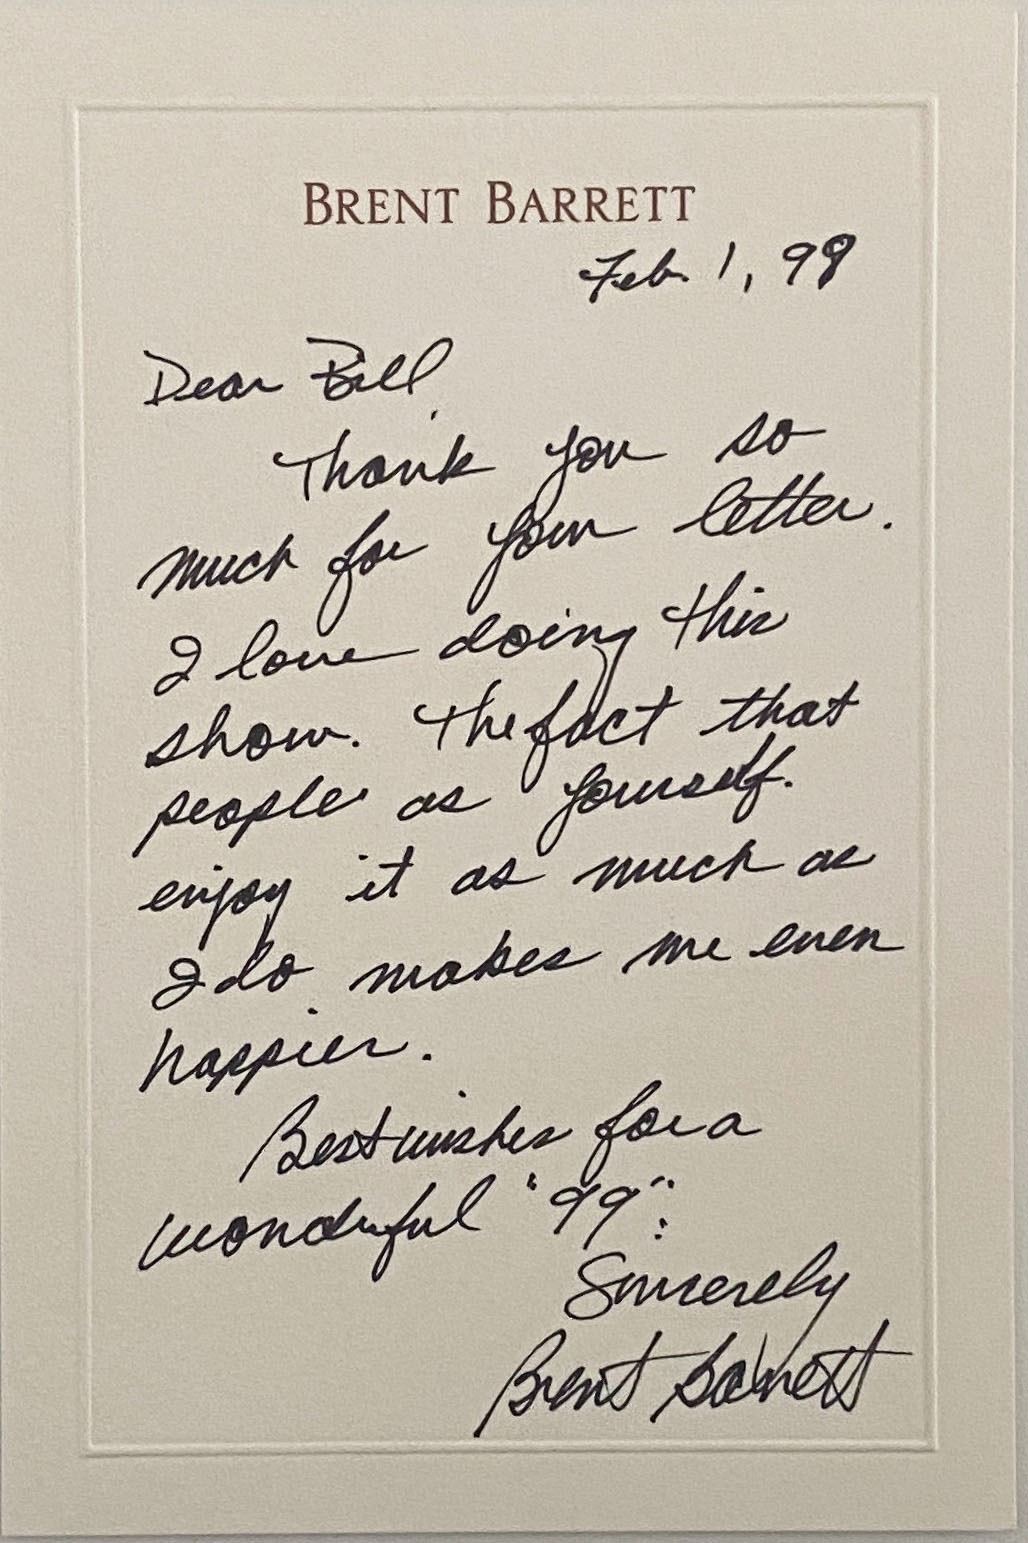 BRENT BARRETT
Feb. 1, 99
Dear Bill
Thank you so
much for your letter.
I love doing this
show. The fact that
people as yourself.
enjoy it as much as
I do makes me even
happier.
Best wishes for a
wonderful "99".
Sincerely
Brent Barrett